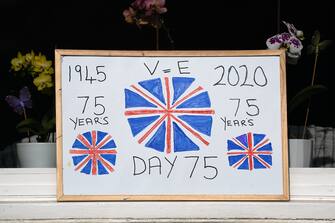 1945 V=E 2020
75 75
YEARS YEARS
DAY 75